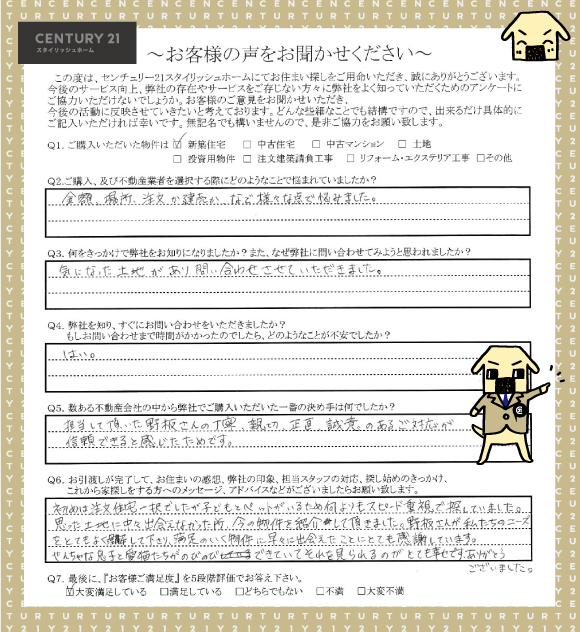 CENTURY 21
スタイリッシュホーム
～お客様の声をお聞かせください～
この度は、センチュリー21スタイリッシュホームにてお住まい探しをご用命いただき、誠にありがとうございます。
今後のサービス向上、弊社の存在やサービスをご存じない方々に弊社をよく知っていただくためのアンケートに
ご協力いただけないでしょうか。お客様のご意見をお聞かせいただき、
今後の活動に反映させていきたいと考えております。どんな些細なことでも結構ですので、出来るだけ具体的に
ご記入いただければ幸いです。無記名でも構いませんので、是非ご協力をお願い致します。
Q1. ご購入いただいた物件は ☑ 新築住宅 □ 中古住宅 □ 中古マンション □ 土地
□ 投資用物件 □ 注文建築請負工事 □ リフォーム・エクステリア工事 □その他
Q2.ご購入、及び不動産業者を選択する際にどのようなことで悩まれていましたか?
金額、場所、注文か建売か、など様々な点で悩みました。
Q3. 何をきっかけで弊社をお知りになりましたか?また、なぜ弊社に問い合わせてみようと思われましたか?
気になった土地があり問い合わせさせていただきました。
Q4. 弊社を知り、すぐにお問い合わせをいただきましたか?
もしお問い合わせまで時間がかかったのでしたら、どのようなことが不安でしたか?
はい。
Q5. 数ある不動産会社の中から弊社でご購入いただいた一番の決め手は何でしたか?
担当して頂いた野板さんの丁寧、親切、正直、誠意のあるご対応が
信頼できると感じたためです。
Q6. お引渡しが完了して、お住まいの感想、弊社の印象、担当スタッフの対応、探し始めのきっかけ、
これから家探しをする方へのメッセージ、アドバイスなどがございましたらお願い致します。
初めは注文住宅一択でしたが子どもとペットがいるため何よりもスピード重視で探していました。
思った土地に中々出会えなかった所、今の物件を紹介して頂きました。野板さんが私たちのニーズ
をとてもよく理解して下さり、満足のいく物件に早々に出会えたことにとても感謝しています。
やんちゃな息子と愛猫たちがのびのびできていてそれを見られるのがとても幸せです。ありがとう
ございました。
Q7. 最後に、『お客様ご満足度』を5段階評価でお答え下さい。
☑大変満足している □満足している □どちらでもない □不満 □大変不満